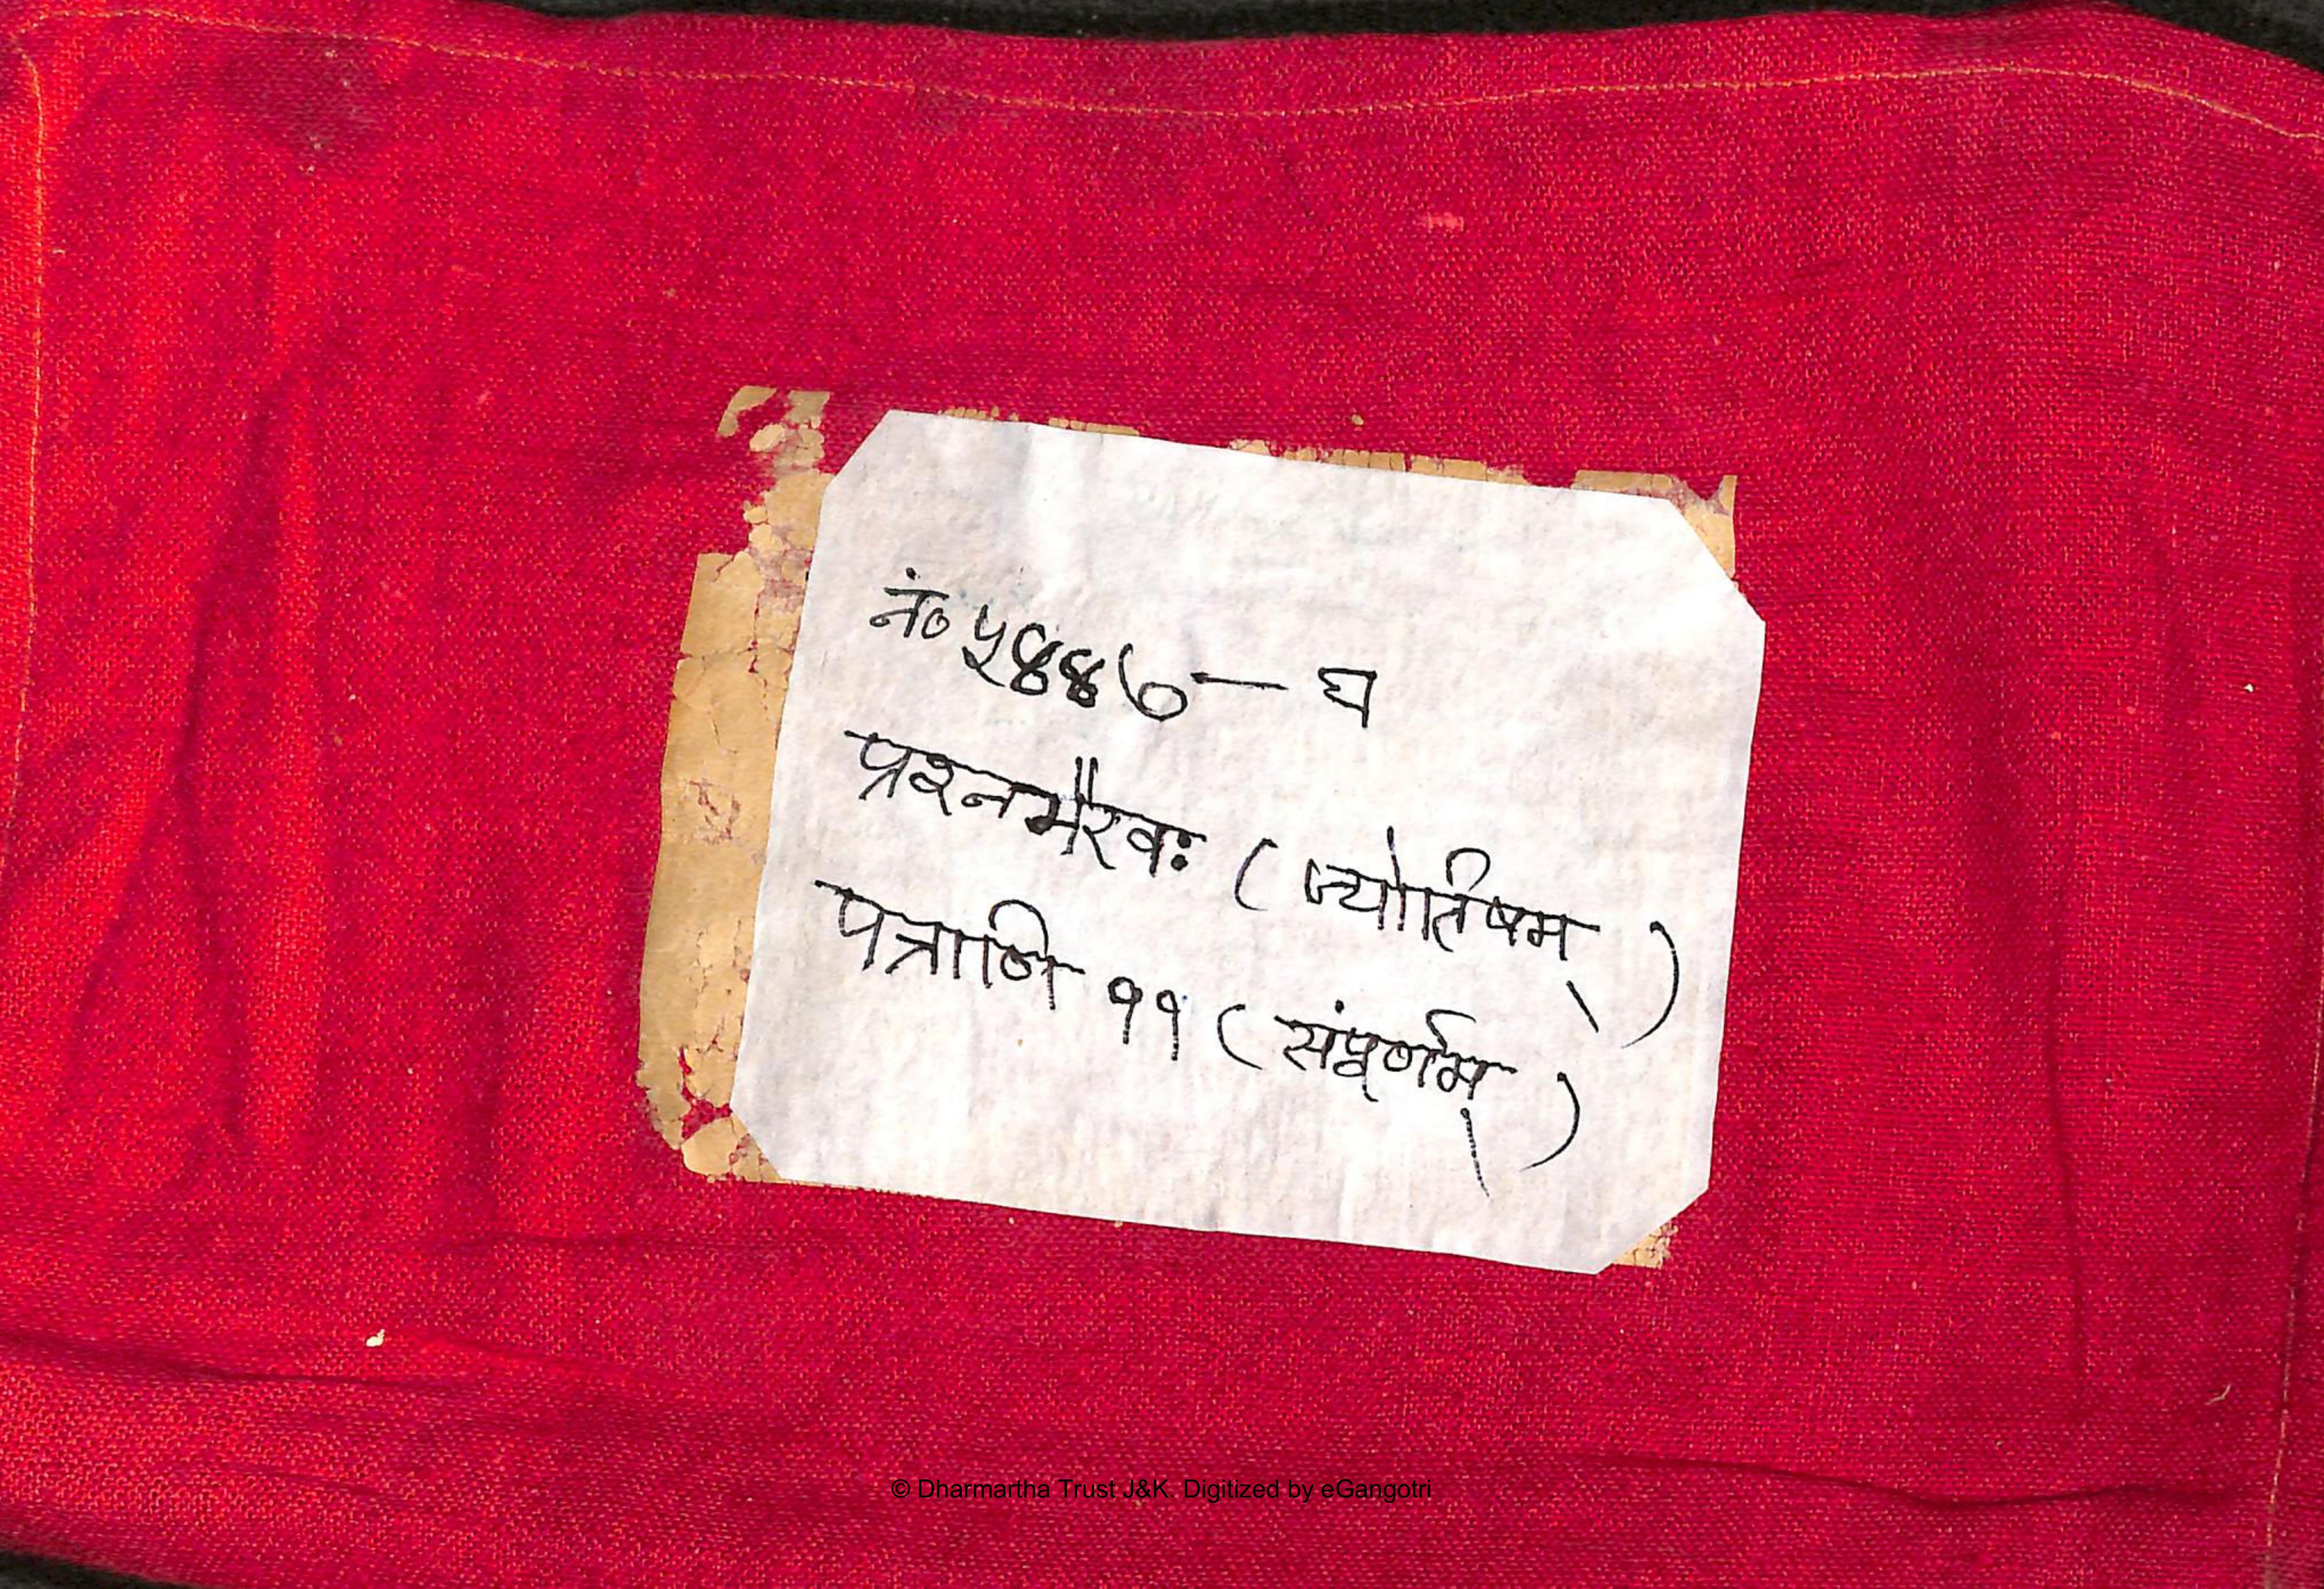 नं० ५४४७ — घ
प्रश्नभैरवः (ज्योतिषम्)
पत्राणि ११ (संपूर्णम्)
© Dharmartha Trust J&K. Digitized by eGangotri